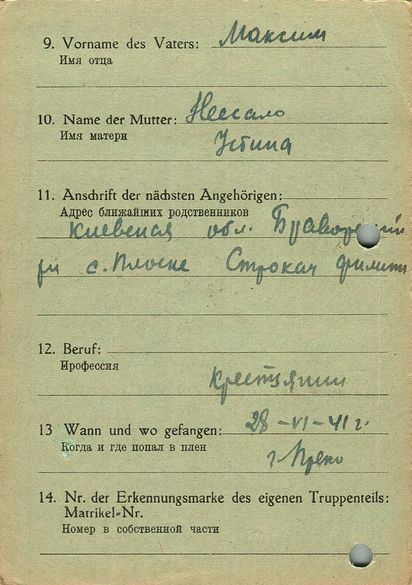 9. Vorname des Vaters: Максим
Имя отца
10. Name der Mutter: Нессало
Имя матери
Устина
11. Anschrift der nächsten Angehörigen:
Адрес ближайших родственников
Киевская обл.
с. Плоске Строкач
12. Beruf:
Профессия
Крестянин
13 Wann und wo gefangen: 28-VI-41 г.
Когда и где попал в плен
14. Nr. der Erkennungsmarke des eigenen Truppenteils:
Matrikel-Nr.
Номер в собственной части